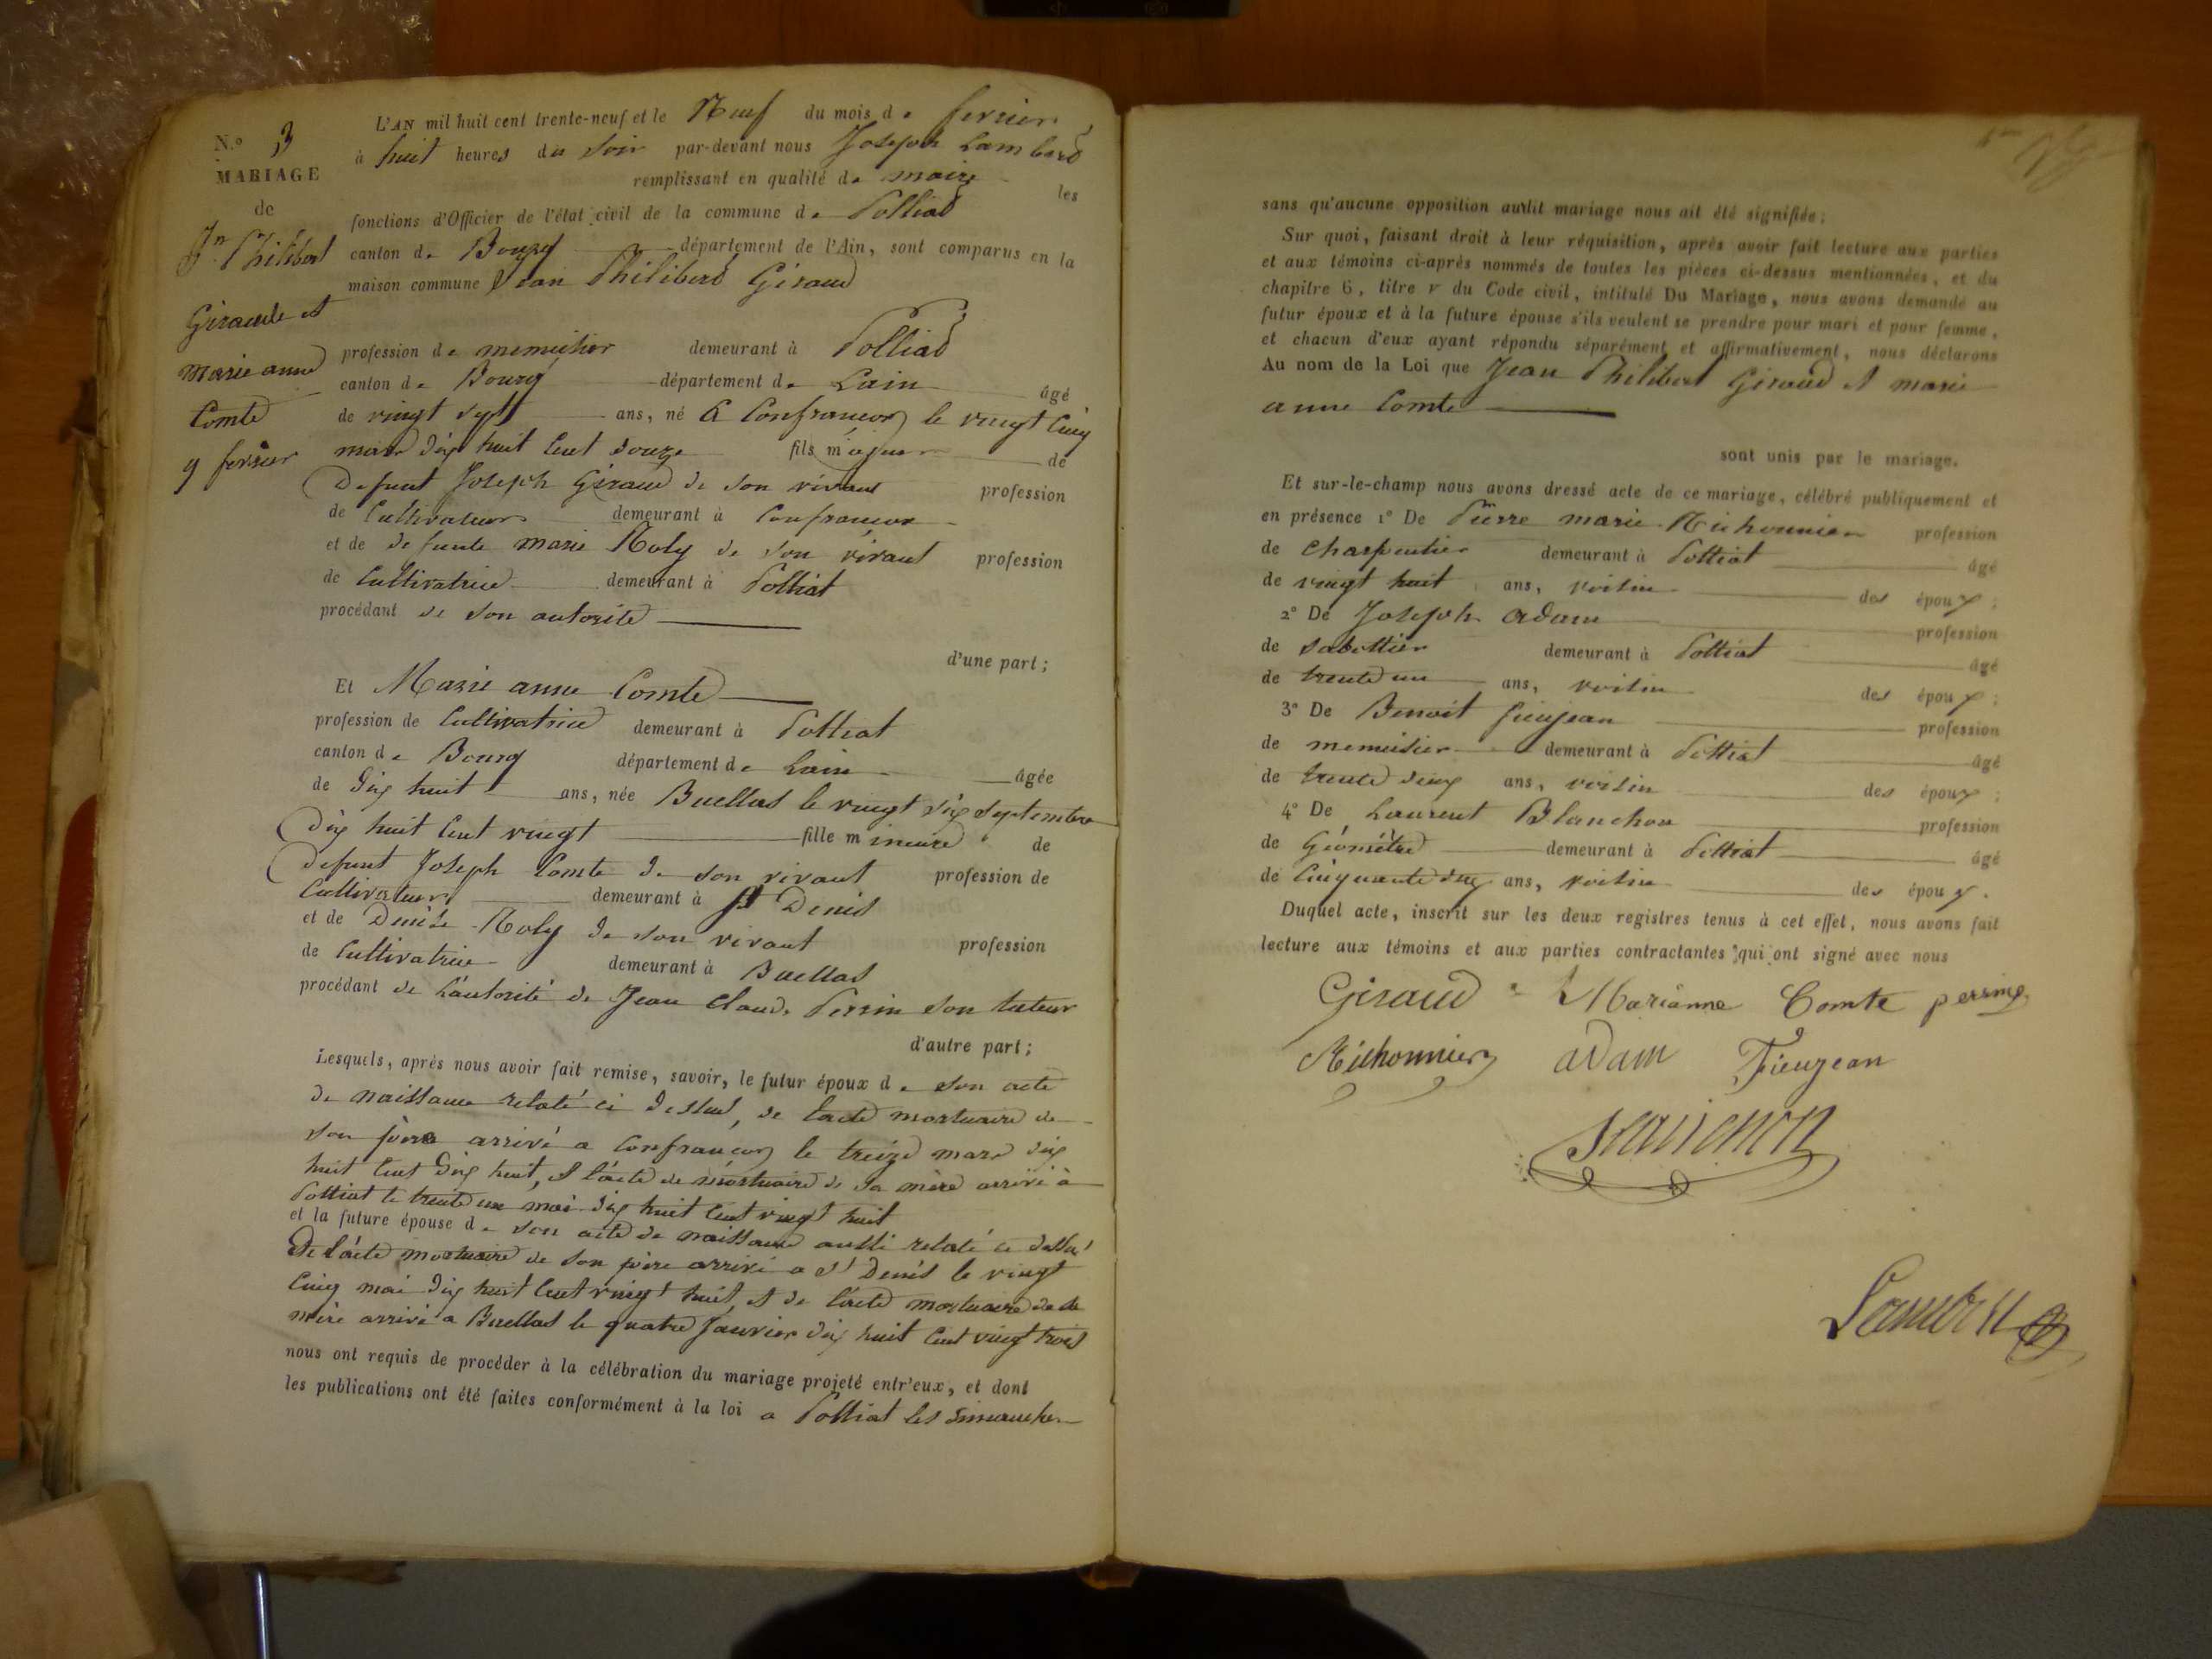 N.º 3
MARIAGE
de
Jn Philibert
Giraud et
marie anne
Comte
9 fevrier
L'AN mil huit cent trente-neuf et le Neuf du mois de fevrier
à huit heures du soir par-devant nous Joseph Lambert
remplissant en qualité de maire les
fonctions d'Officier de l'état civil de la commune de Polliat
canton de Bourg département de l'Ain, sont comparus en la
maison commune Jean Philibert Giraud
profession de menuisier demeurant à Polliat
canton de Bourg département de Lain âgé
de vingt sept ans, né à Confrançon le vingt cinq
mars dix huit cent douze fils majeur de
Defunt Joseph Giraud de son vivant profession
de Cultivateur demeurant à Confrançon
et de defunte marie Roly de son vivant profession
de Cultivatrice demeurant à Polliat
procédant de son autorité
d'une part ;
Et Marie anne Comte
profession de Cultivatrice demeurant à Polliat
canton de Bourg département de Lain âgée
de dix huit ans, née Buellas le vingt six septembre
dix huit cent vingt fille mineure de
defunt Joseph Comte de son vivant profession de
Cultivateur demeurant à St Denis
et de Denise Roly de son vivant profession
de Cultivatrice demeurant à Buellas
procédant de L'autorité de Jean Claude Perrin son tuteur
d'autre part ;
Lesquels, après nous avoir fait remise, savoir, le futur époux de son acte
de naissance relaté ci dessus, de l'acte mortuaire de
son père arrivé a Confrançon le treize mars dix
huit cent dix huit, et l'acte de mortuaire de sa mère arrivé à
Polliat le trente un mai dix huit cent vingt huit
et la future épouse de son acte de naissance aussi relaté ci dessus
De l'acte mortuaire de son père arrivé a St Denis le vingt
cinq mai dix huit cent vingt huit, et de l'acte mortuaire de sa
mère arrivé a Buellas le quatre Janvier dix huit cent vingt trois
nous ont requis de procéder à la célébration du mariage projeté entr'eux, et dont
les publications ont été faites conformément à la loi a Polliat les dimanches
sans qu'aucune opposition audit mariage nous ait été signifiée ;
Sur quoi, faisant droit à leur réquisition, après avoir fait lecture aux parties
et aux témoins ci-après nommés de toutes les pièces ci-dessus mentionnées, et du
chapitre 6, titre v du Code civil, intitulé Du Mariage, nous avons demandé au
futur époux et à la future épouse s'ils veulent se prendre pour mari et pour femme,
et chacun d'eux ayant répondu séparément et affirmativement, nous déclarons
Au nom de la Loi que Jean Philibert Giraud et marie
anne Comte
sont unis par le mariage.
Et sur-le-champ nous avons dressé acte de ce mariage, célébré publiquement et
en présence 1º De Pierre marie Richonnier profession
de charpentier demeurant à Polliat âgé
de vingt huit ans, voisin des époux ;
2º De Joseph Adam profession
de sabottier demeurant à Polliat âgé
de trente un ans, voisin des époux ;
3º De Benoit Fieujean profession
de menuisier demeurant à Polliat âgé
de trente deux ans, voisin des époux ;
4º De Laurent Blanchon profession
de Géomètre demeurant à Polliat âgé
de Cinquante ans, voisin des époux.
Duquel acte, inscrit sur les deux registres tenus à cet effet, nous avons fait
lecture aux témoins et aux parties contractantes qui ont signé avec nous
Giraud Marianne Comte perrin
Richonnier adam Fieujean
Lambert